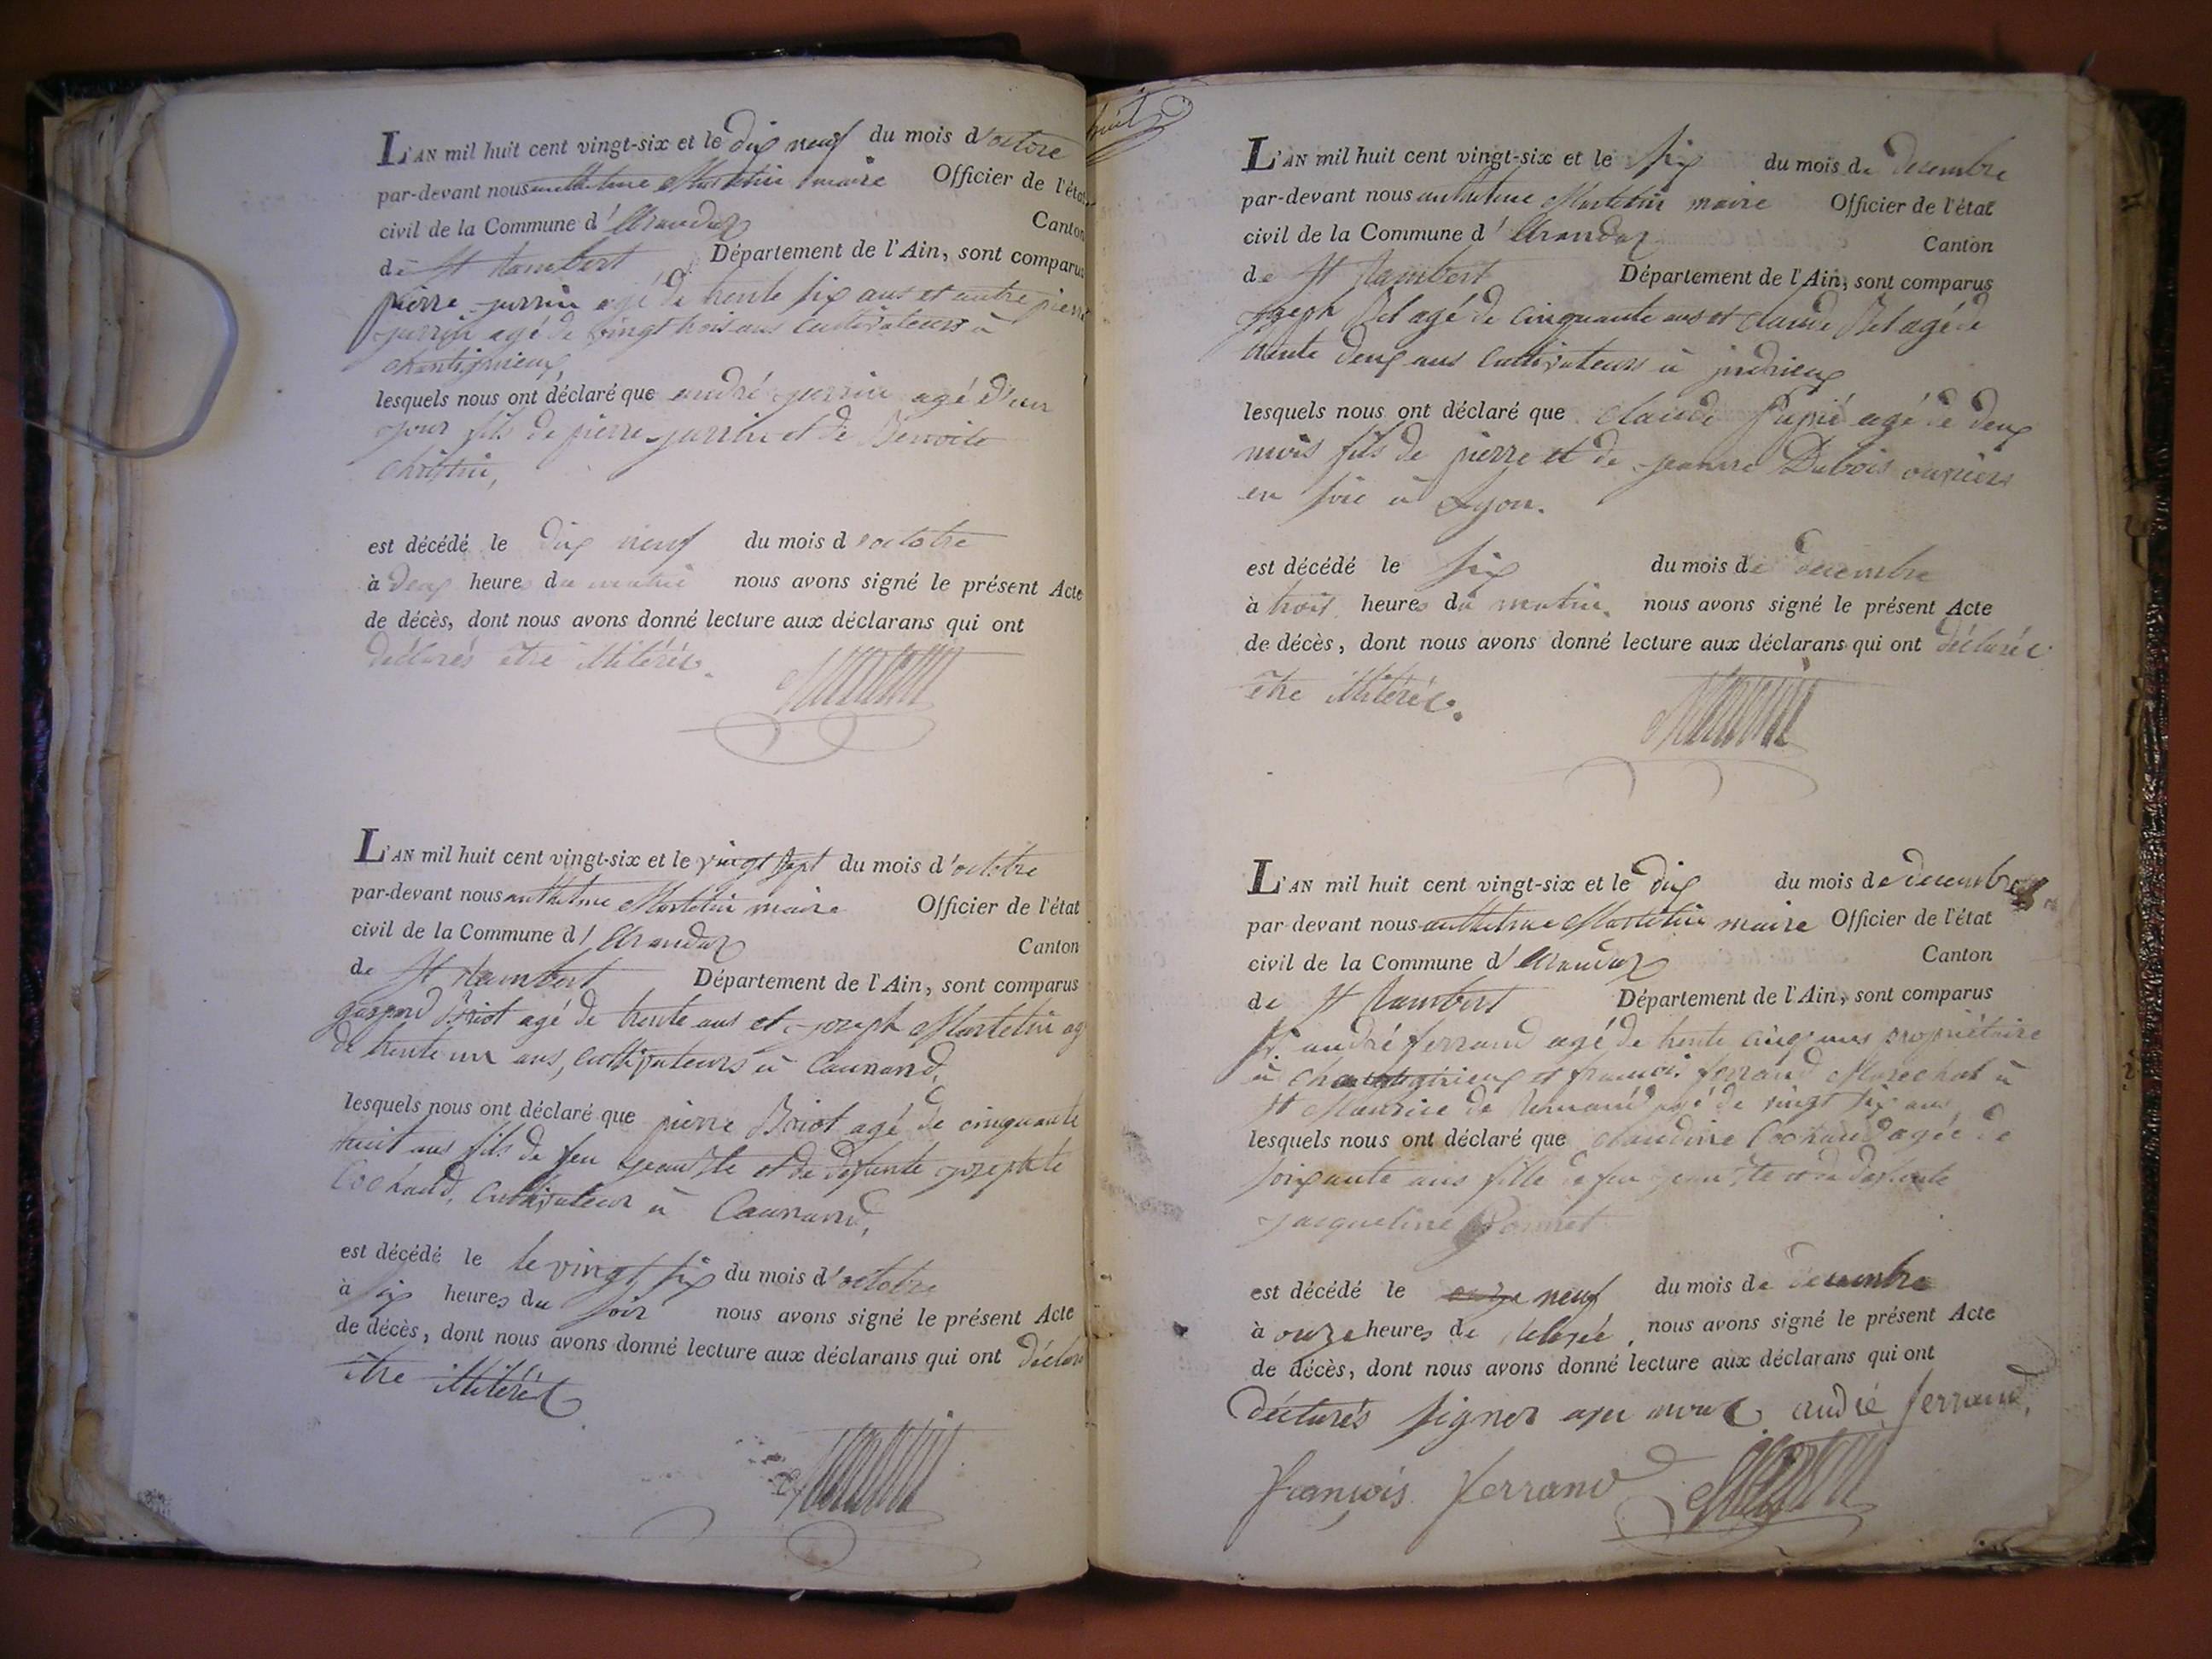 L'AN mil huit cent vingt-six et le dix neuf du mois d'octore
par-devant nous anthelme Martelin maire Officier de l'état
civil de la Commune d'Arandaz Canton
de St Rambert Département de l'Ain, sont comparus
pierre jurrin agé de trente six ans et autre pierre
jurrin agé de vingt trois ans cultivateurs à
chantignieux
lesquels nous ont déclaré que andré jurrin agé d'un
jour fils de pierre jurrin et de Benoite
christin,
est décédé le dix neuf du mois d'octobre
à deux heures du matin nous avons signé le présent Acte
de décès, dont nous avons donné lecture aux déclarans qui ont
déclarés être illitérés.
Martelin
L'AN mil huit cent vingt-six et le vingt sept du mois d'octobre
par-devant nous anthelme Martelin maire Officier de l'état
civil de la Commune d'Arandaz Canton
de St Rambert Département de l'Ain, sont comparus
gaspard Briot agé de trente ans et joseph Martelin ag
de trente un ans, cultivateurs à Caunand,
lesquels nous ont déclaré que pierre Briot agé de cinquante
huit ans fils de feu jean Bte et de defunte josephte
Cochaud, cultivateur à Caunand,
est décédé le le vingt six du mois d'octobre
à six heures du soir nous avons signé le présent Acte
de décès, dont nous avons donné lecture aux déclarans qui ont déclaré
être illitérés
Martelin
huit
L'AN mil huit cent vingt-six et le six du mois de decembre
par-devant nous anthelme Martelin maire Officier de l'état
civil de la Commune d'Arandaz Canton
de St Rambert Département de l'Ain, sont comparus
joseph Bel agé de cinquante ans et claude Bel agé de
trente deux ans cultivateurs à indrieux
lesquels nous ont déclaré que claude agé de deux
mois fils de pierre et de jeanne Dubois ouvriers
en soie à Lyon.
est décédé le six du mois de decembre
à trois heures du matin. nous avons signé le présent Acte
de décès, dont nous avons donné lecture aux déclarans qui ont déclarés
être illitérés.
Martelin
L'AN mil huit cent vingt-six et le dix du mois de decembre
par devant nous anthelme Martelin maire Officier de l'état
civil de la Commune d'Arandaz Canton
de St Rambert Département de l'Ain, sont comparus
Sr. andré ferrand agé de trente cinq ans propriétaire
à chantignieux et françois ferrand Marechal à
St Maurice de Remand agé de vingt six ans
lesquels nous ont déclaré que claudine Cochaud agée de
soixante ans fille de feu jean Bte et de defunte
jacqueline Bonnet
est décédé le onze neuf du mois de decembre
à onze heures de relevée, nous avons signé le présent Acte
de décès, dont nous avons donné lecture aux déclarans qui ont
déclarés signer avec nous andré ferrand,
françois ferrand Martelin